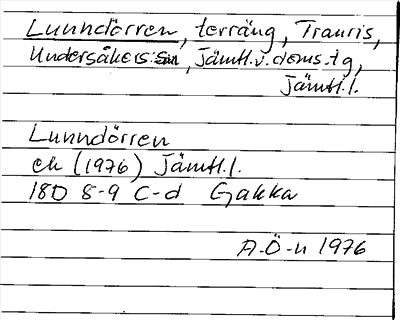 Lunndörren, terräng, Trauris,
Undersåkers sn, Jämtl. v. doms. tg,
Jämtl. l.
Lunndörren
ek (1976) Jämtl. l.
18D 8-9 C-d Gakka
A-Ö-n 1976